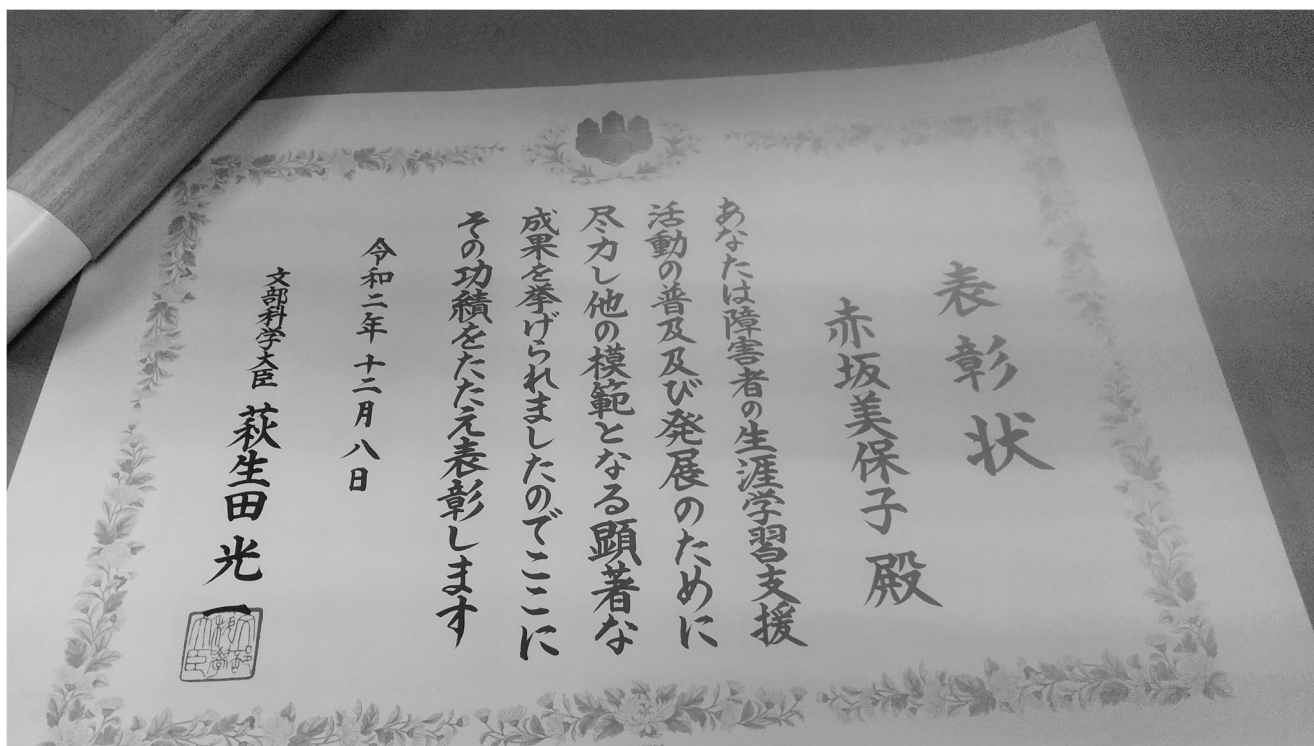 表彰状
赤坂美保子殿
あなたは障害者の生涯学習支援
活動の普及及び発展のために
尽力し他の模範となる顕著な
成果を挙げられましたのでここに
その功績をたたえ表彰します
令和二年十二月八日
文部科学大臣 萩生田光一